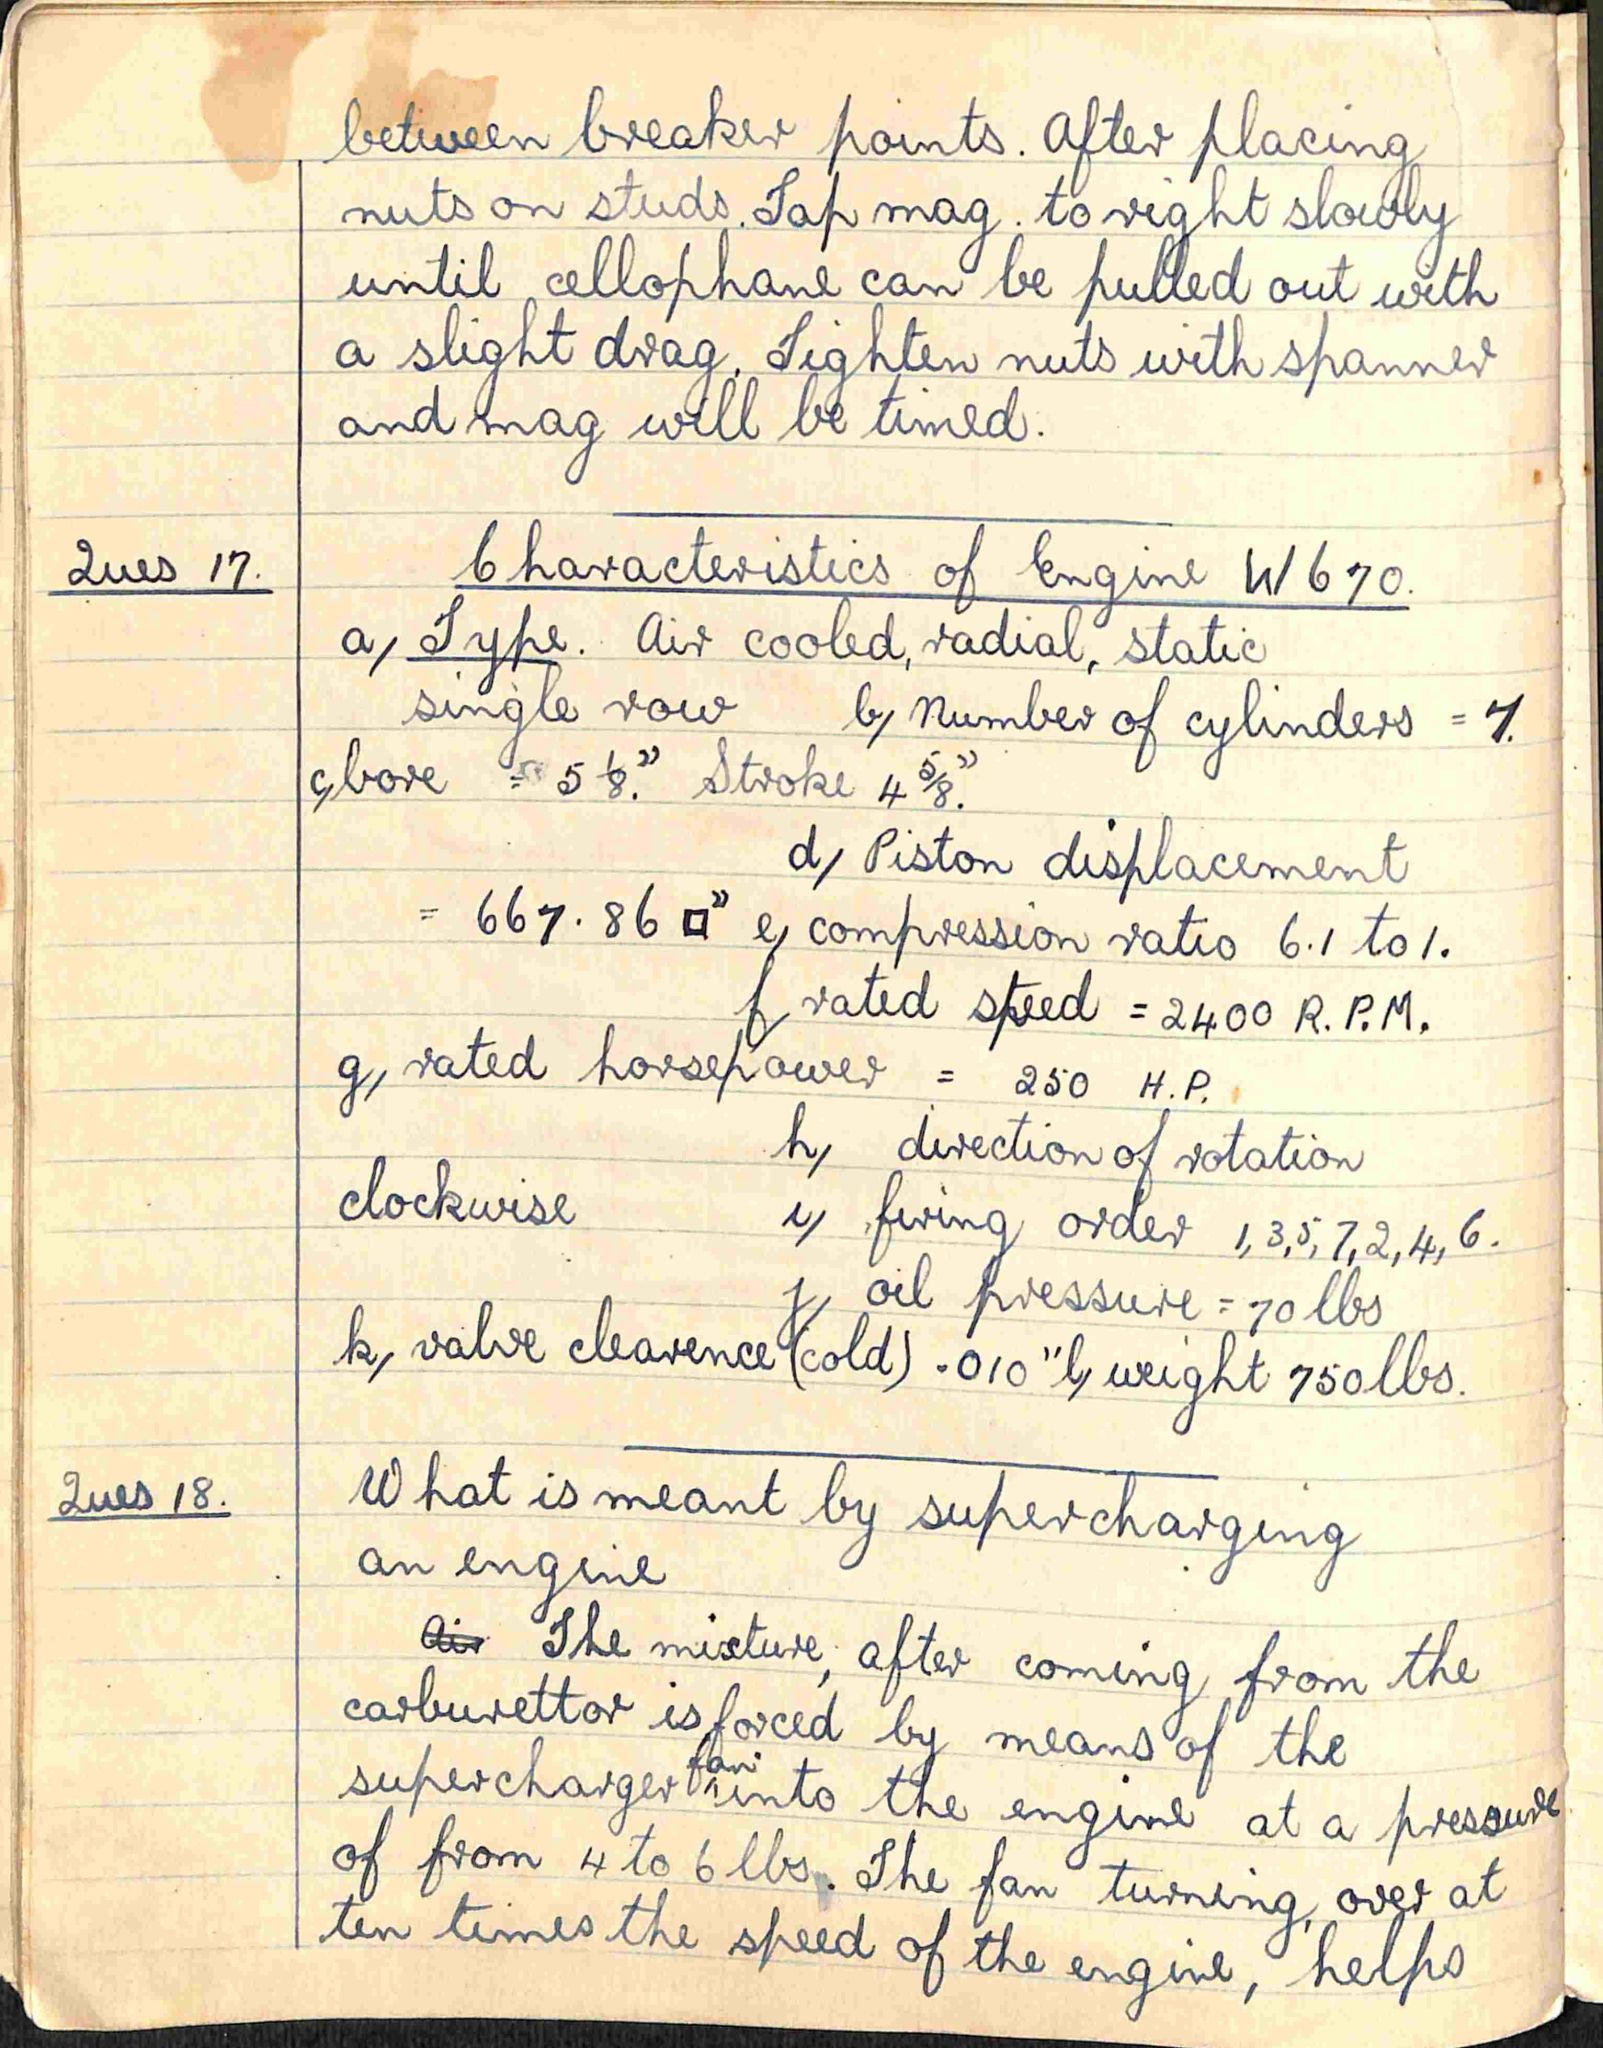 between breaker points. After placing
nuts on studs. Tap mag. to right slowly
until cellophane can be pulled out with
a slight drag. Tighten nuts with spanner
and mag will be timed.
Ques 17. Characteristics of Engine W670.
a, Type. Air cooled, radial, static
single row b, Number of cylinders = 7.
c, bore = 5 1/8". Stroke 4 5/8".
d, Piston displacement
= 667.86 □" e, compression ratio 6.1 to 1.
f, rated speed = 2400 R.P.M.
g, rated horsepower = 250 H.P.
h, direction of rotation
clockwise i, firing order 1,3,5,7,2,4,6.
j, oil pressure = 70 lbs
k, valve clearence (cold) .010" l, weight 750 lbs.
Ques 18. What is meant by supercharging
an engine
Air The mixture, after coming from the
carburettor is forced by means of the
supercharger fan into the engine at a pressure
of from 4 to 6 lbs. The fan turning over at
ten times the speed of the engine, helps